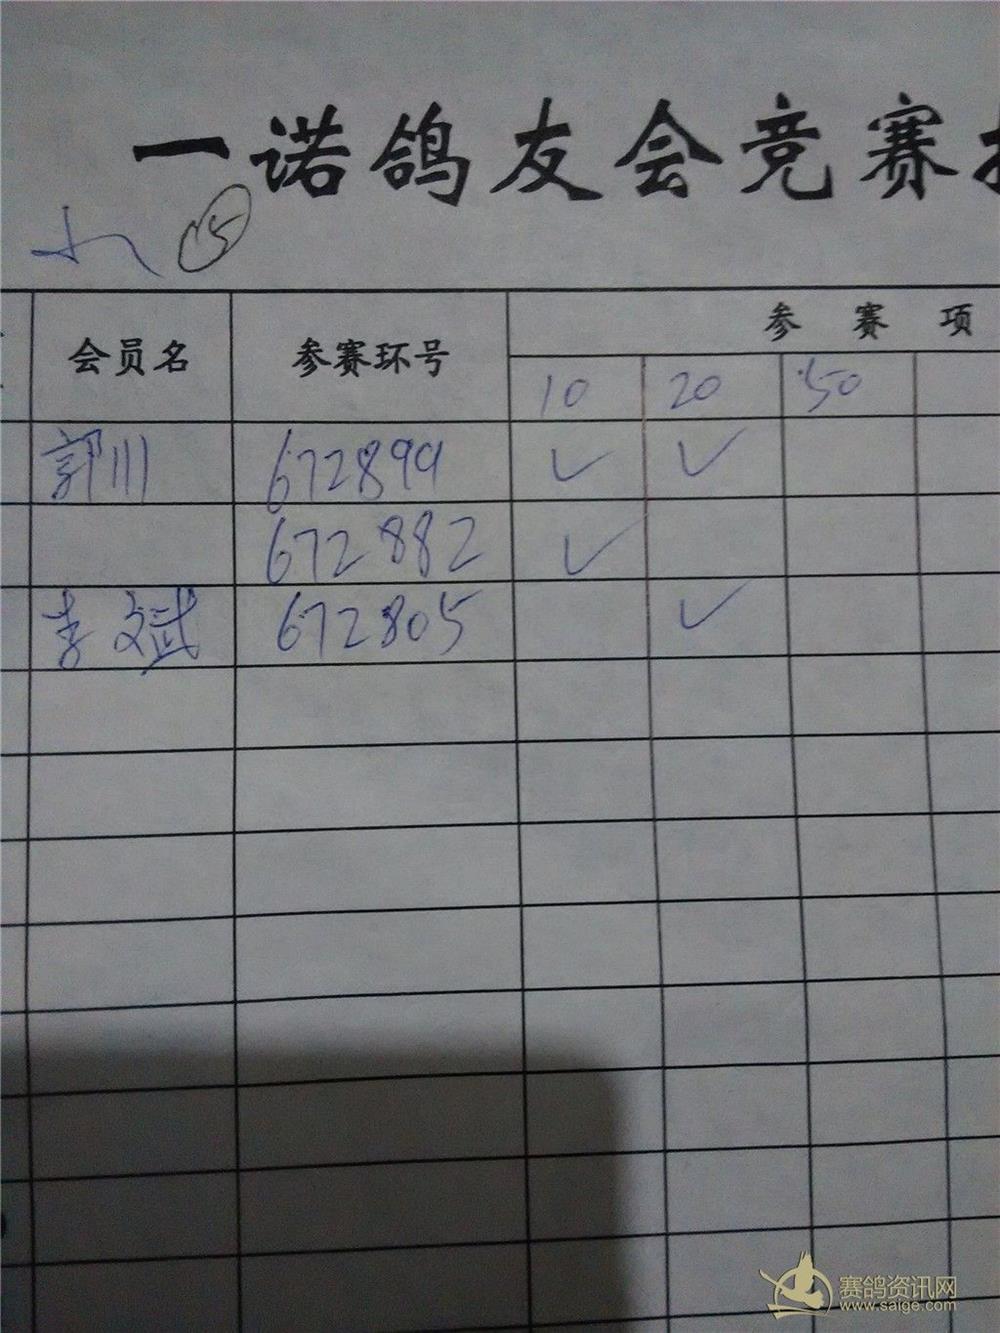 一诺鸽友会竞赛
15
会员名 参赛环号 参赛项
10 20 50
郭川 672899 ✓ ✓
672882 ✓
李斌 672805 ✓
赛鸽资讯网
www.saige.com